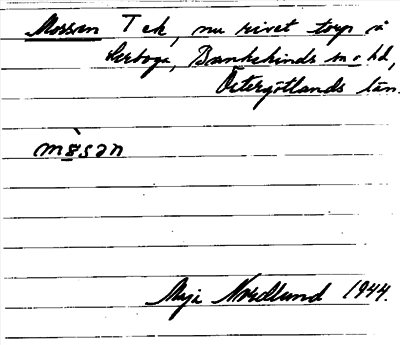 Mossen T ek, nu rivet torp å
Lerboga, Bankekinds sn o hd,
Östergötlands län.
mɷ̀sən
Maja Nordlund 1944.